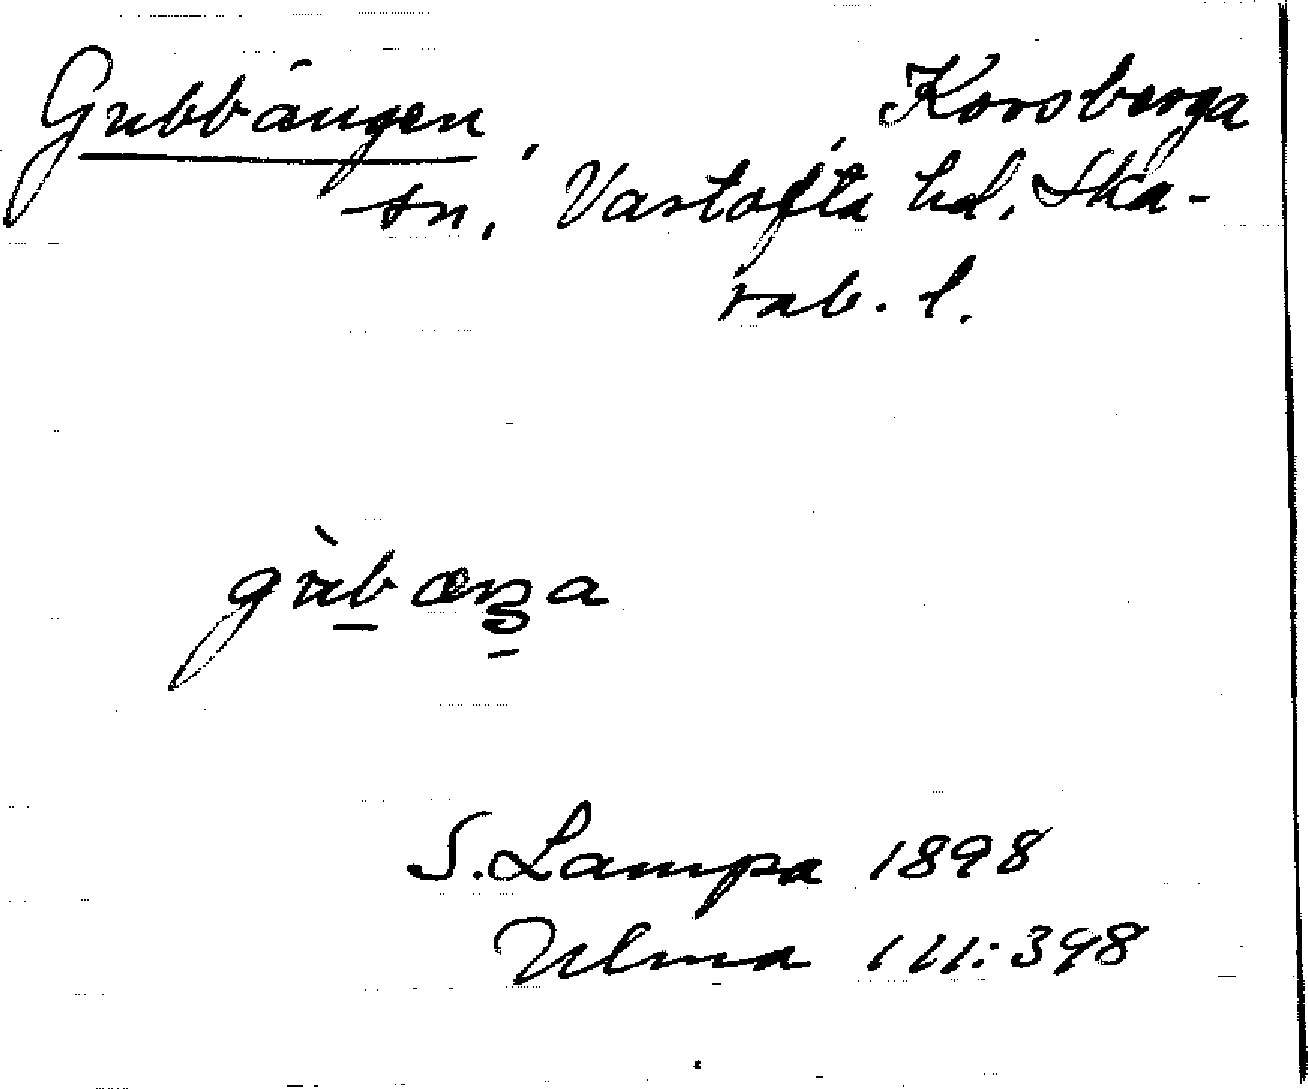 Gubbängen, Korsberga
sn. Vartofta hd, Ska-
rab. l.
gùb æŋa
S. Lampa 1898
Ulma 111:398